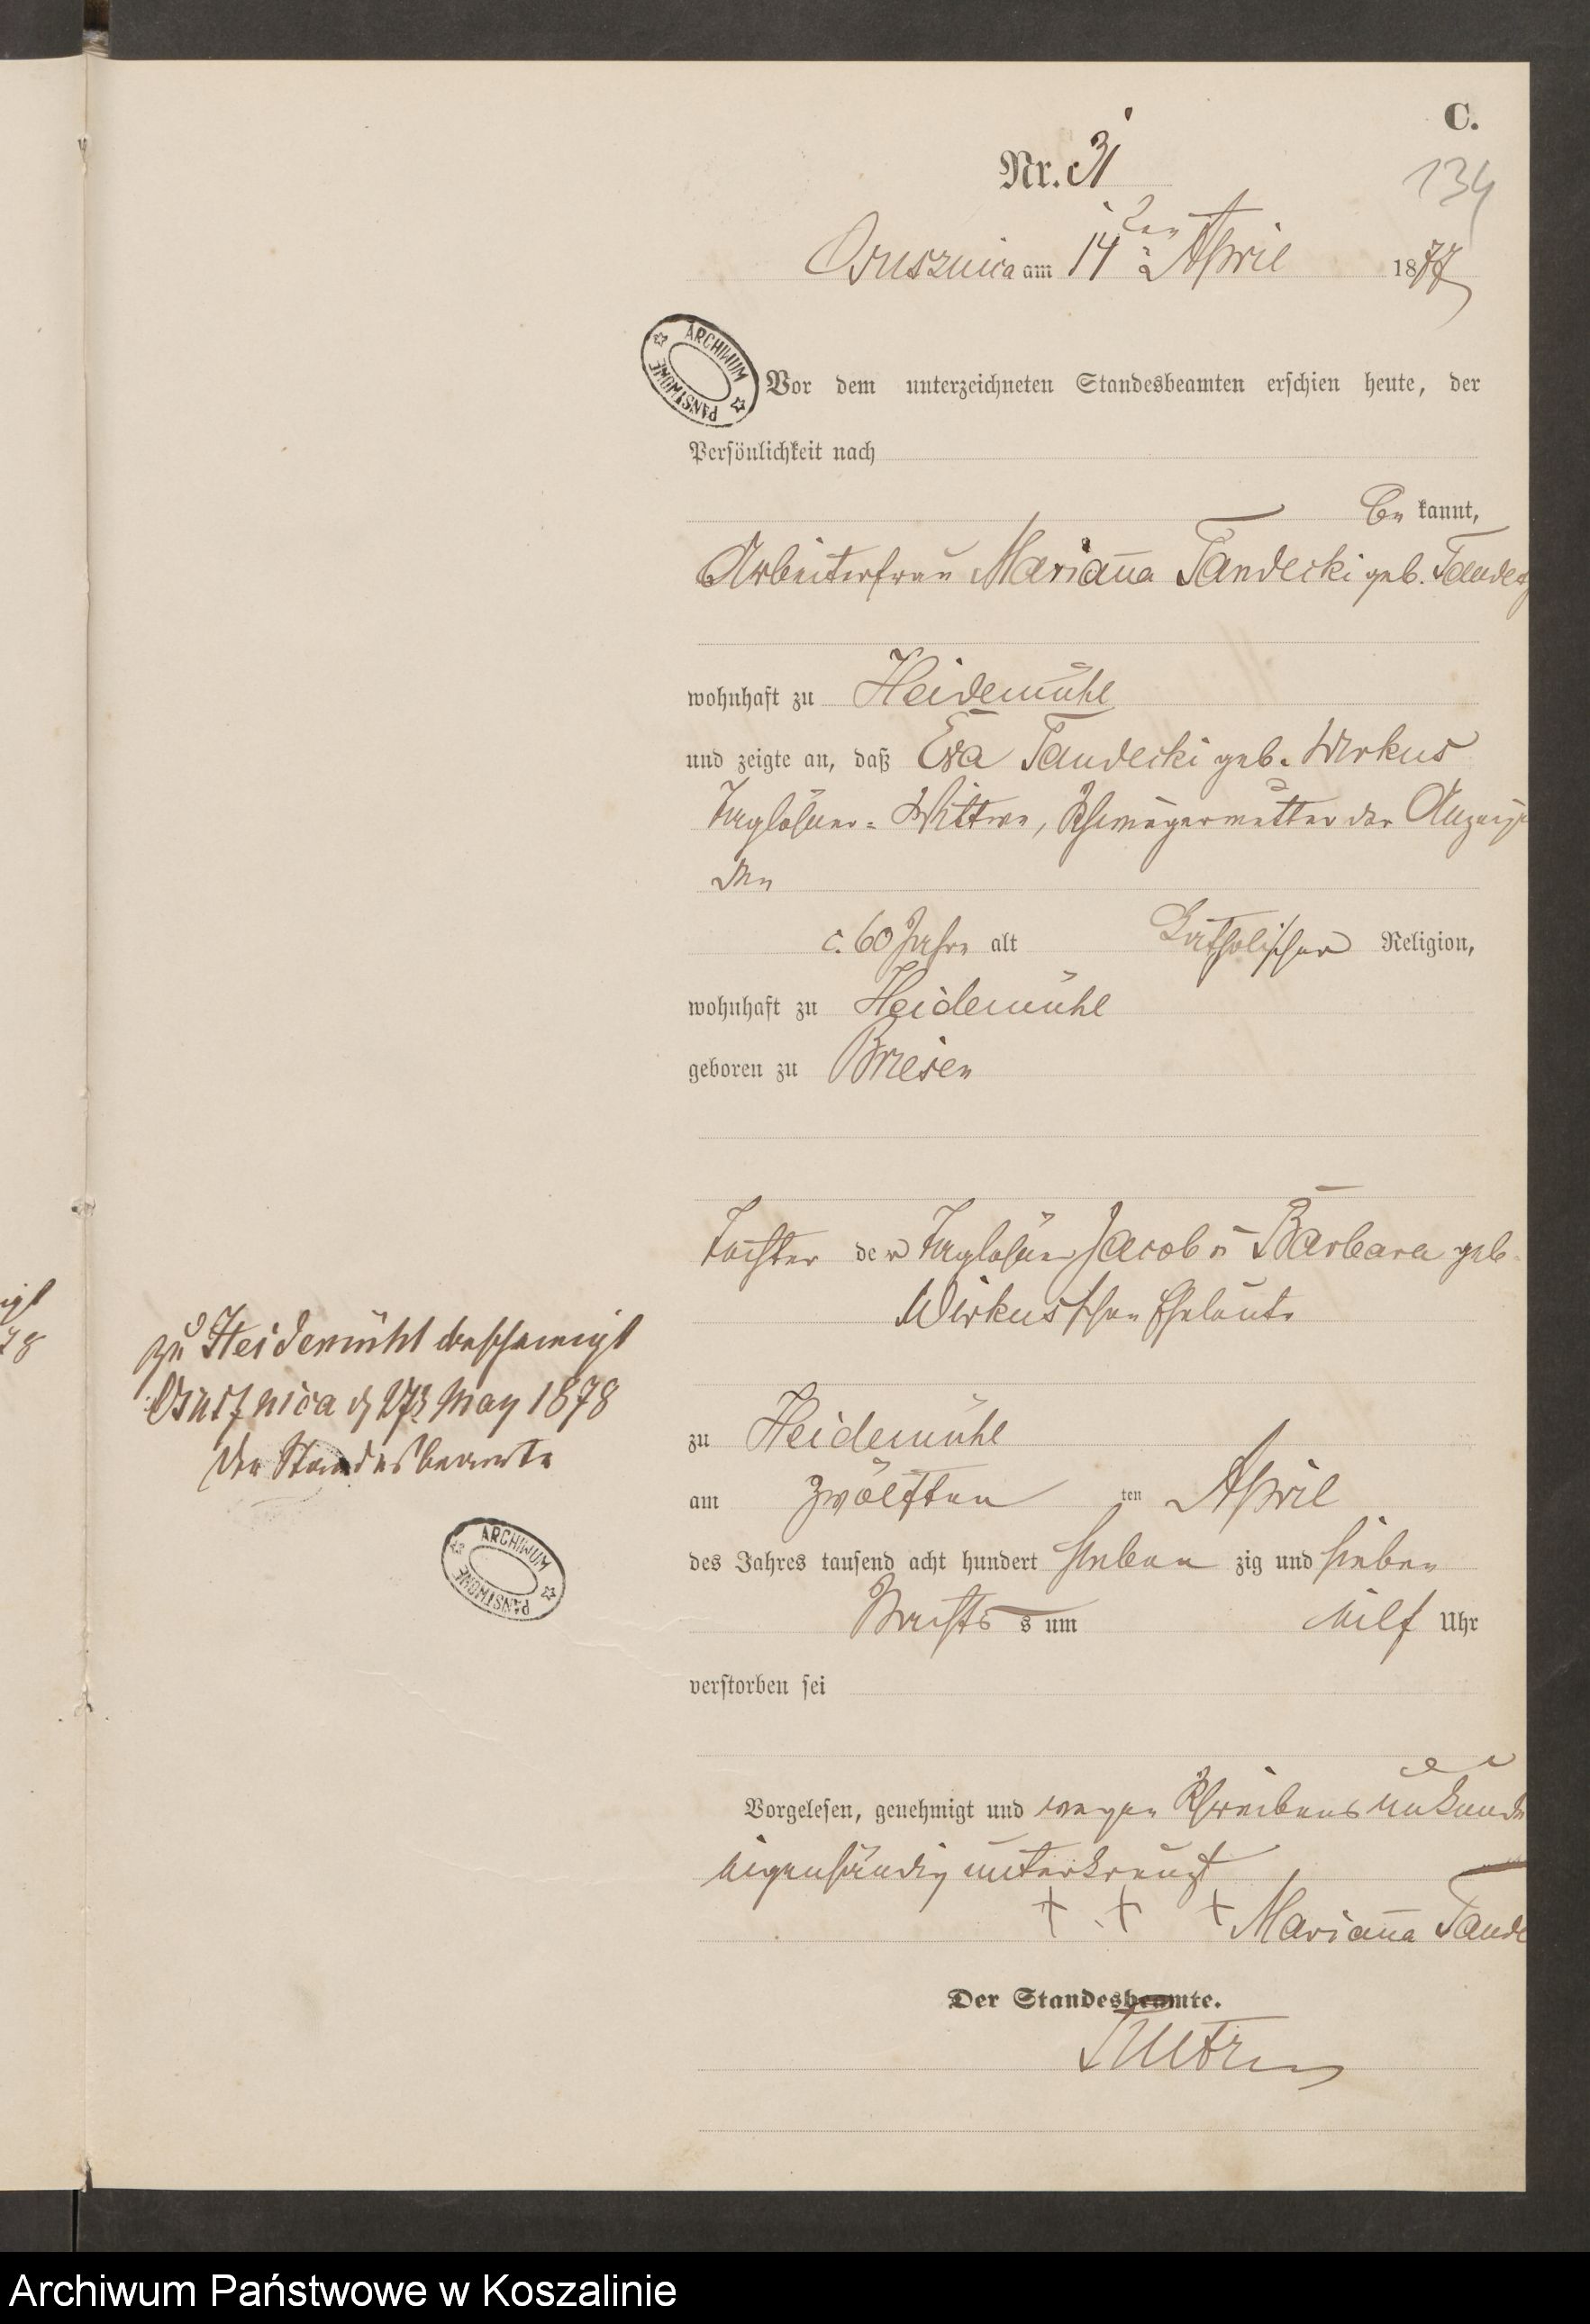 C.
Nr. 31
134
Osusznica am 14 ten April 1877
ARCHIWUM PAŃSTWOWE
Vor dem unterzeichneten Standesbeamten erschien heute, der
Persönlichkeit nach
be kannt,
Arbeiterfrau Marianna Tandecki geb. Tandec
wohnhaft zu Heidemühl
und zeigte an, daß Eva Tandecki geb. Wirkus
Taglöhner-Wittwe, Schwiegermutter der Anzeige
den
c. 60 Jahre alt Katholischer Religion,
wohnhaft zu Heidemühl
geboren zu Briesen
Tochter der Taglöhner Jacob u Barbara geb
Wirkus'schen Eheleute
zu Heidemühl bescheinigt
Osusznica d 27 May 1878
Der Standesbeamte
zu Heidemühl
am zwölften ten April
des Jahres tausend acht hundert sieben zig und sieben
ARCHIWUM PAŃSTWOWE
Nachts s um eilf Uhr
verstorben sei
Vorgelesen, genehmigt und wegen Schreibensunkunde
eigenhändig unterkreuzt
+ + + Marianna Tande
Der Standesbeamte.
Archiwum Państwowe w Koszalinie